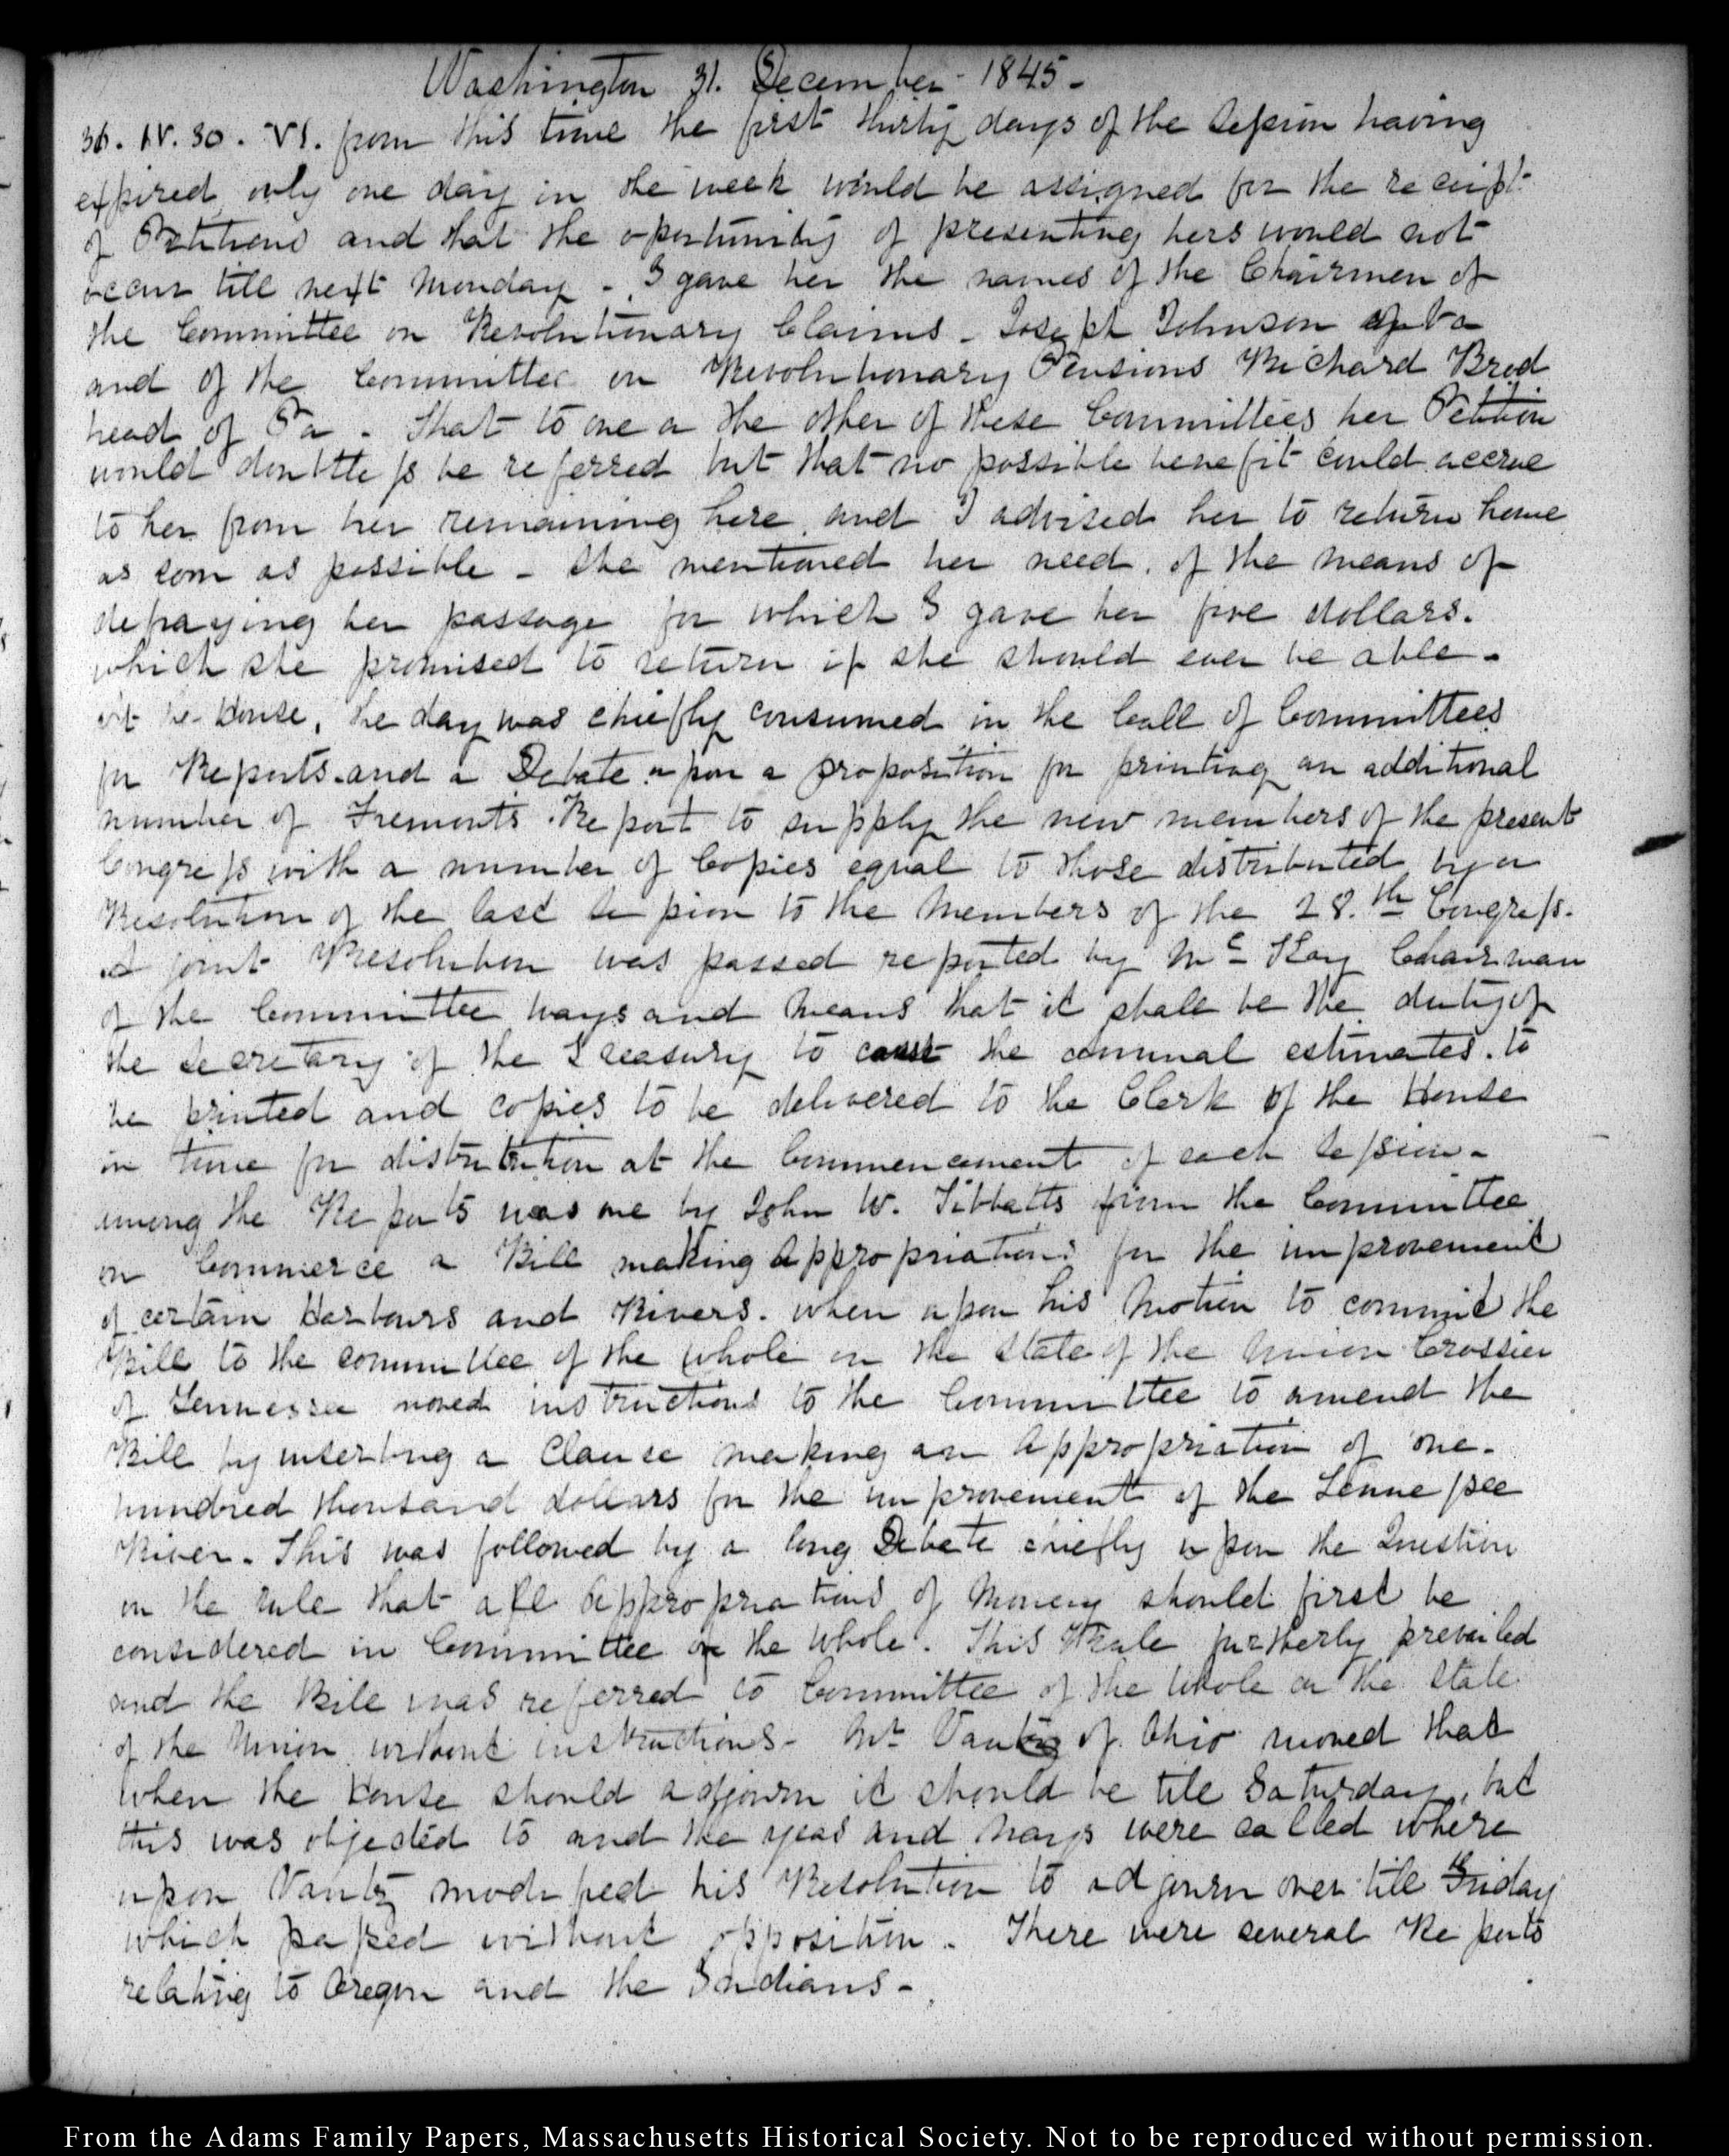 Washington 31. December 1845-
30. IV. 30. VI. from this time the first thirty days of the Session having
expired only one day in the week would be assigned for the receipt
of Petitions and that the opportunity of presenting hers would not
occur till next Monday - I gave her the names of the Chairmen of
the Committee on Revolutionary Claims - Joseph Johnson of Va
and of the Committee on Revolutionary Pensions Richard Brod
head of Pa - That to one or the other of these Committees her Petition
would doubtless be referred but that no possible benefit could accrue
to her from her remaining here and I advised her to return home
as soon as possible - She mentioned her need of the means of
defraying her passage for which I gave her five dollars.
which she promised to return if she should ever be able -
at the House, the day was chiefly consumed in the Call of Committees
for Reports and a Debate upon a proposition for printing an additional
number of Fremonts Report to supply the new members of the present
Congress with a number of Copies equal to those distributed by a
Resolution of the last Session to the Members of the 28.th Congress.
A joint Resolution was passed reported by Mc Kay Chairman
of the Committee ways and Means that it shall be the duty of
the Secretary of the Treasury to cause the annual estimates to
be printed and copies to be delivered to the Clerk of the House
in time for distribution at the Commencement of each Session -
among the Reports was one by John W. Tibbatts from the Committee
on Commerce a Bill making Appropriations for the improvement
of certain Harbours and Rivers. when upon his Motion to commit the
Bill to the committee of the whole on the State of the Union Crossier
of Tennessee moved instructions to the Committee to amend the
Bill by inserting a Clause making an Appropriation of one-
hundred thousand dollars for the improvement of the Tennessee
River - This was followed by a long Debate chiefly upon the Question
on the rule that all Appropriations of Money should first be
considered in Committee of the Whole. This Rule prevailed
and the Bill was referred to Committee of the Whole on the State
of the Union without instructions - Mr Vance of Ohio moved that
when the House should adjourn it should be till Saturday, but
this was objected to and the yeas and Nays were called where
upon modified his Resolution to adjourn over till Friday
which passed without opposition - There were several Reports
relating to Oregon and the Indians -
From the Adams Family Papers, Massachusetts Historical Society. Not to be reproduced without permission.